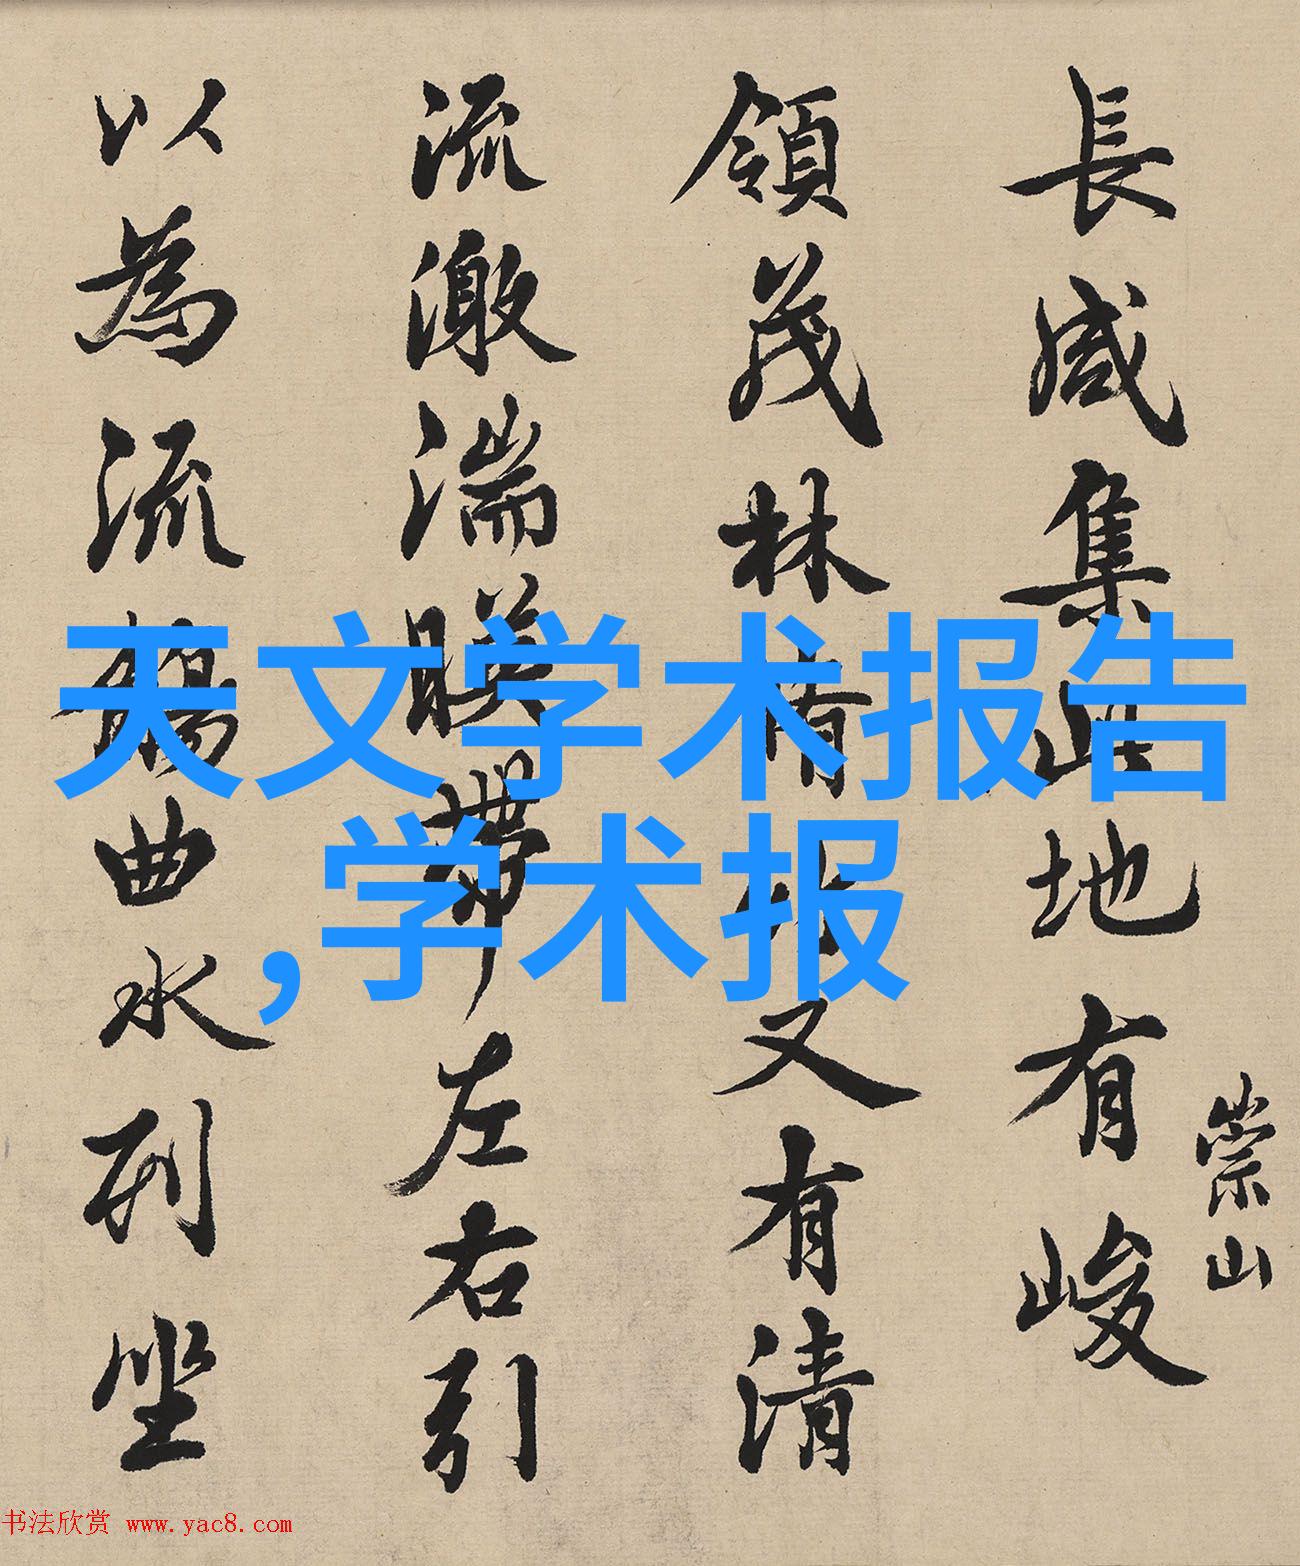 崇山
長咸集此地有峻
領茂林脩竹又有清
流激湍暎帶左右引
以為流觴曲水列坐
天文学术报告
,学术报
书法欣赏 www.yac8.com